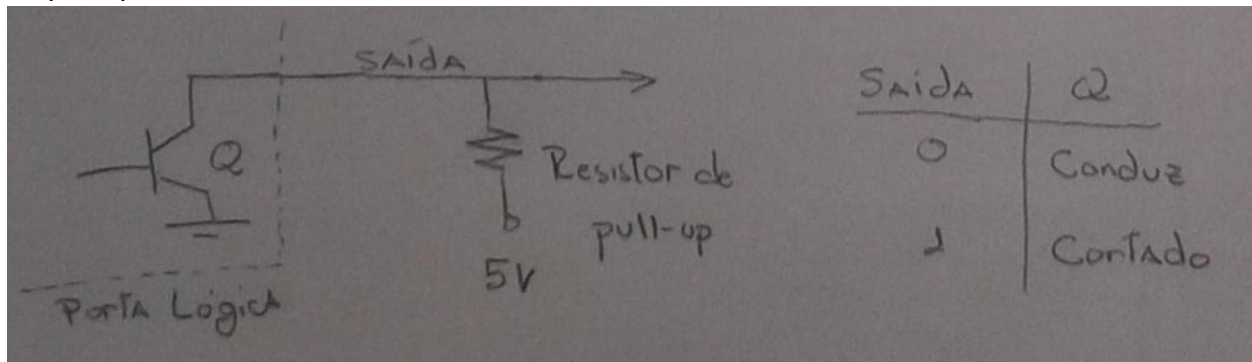 SAÍDA
Q
Resistor de
pull-up
5V
Porta Lógica
Saída Q
0 Conduz
1 Cortado